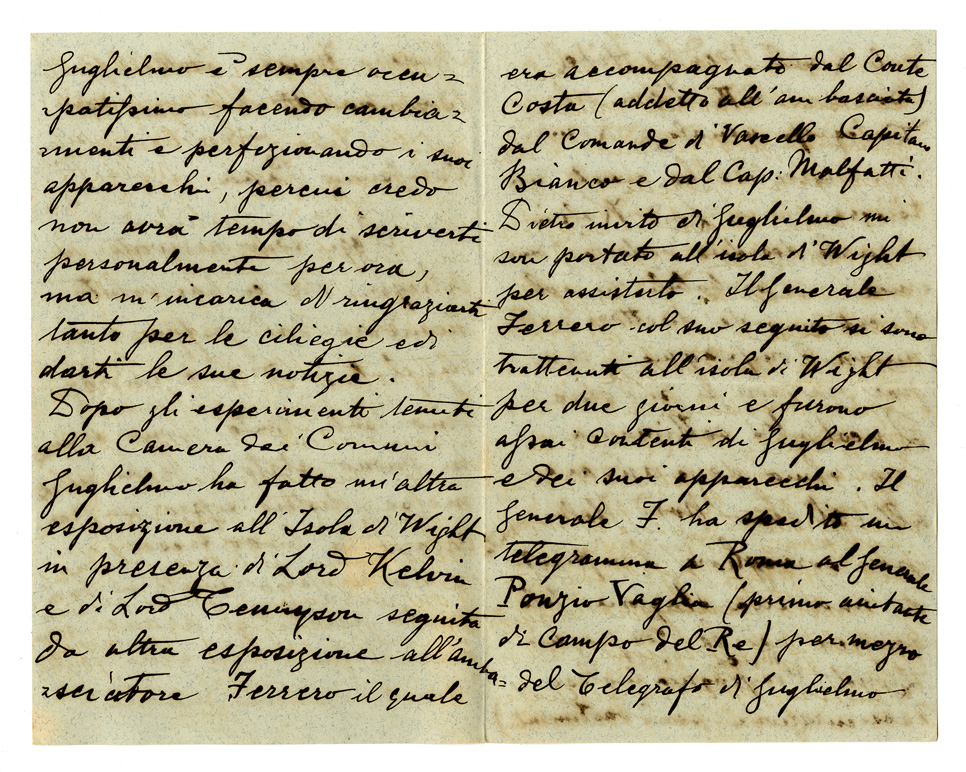 Guglielmo è sempre occu=
=patissimo facendo cambia=
=menti e perfezionando i suoi
apparecchi, percui credo
non avrà tempo di scriverti
personalmente per ora,
ma m'incarica di ringraziarti
tanto per le ciliegie e di
darti le sue notizie.
Dopo gli esperimenti tenuti
alla Camera dei Comuni
Guglielmo ha fatto un'altra
esposizione all'Isola di Wight
in presenza di Lord Kelvin
e di Lord Tennyson seguita
da altra esposizione all'amba=
=sciatore Ferrero il quale
era accompagnato dal Conte
Costa (addetto all'ambasciata)
dal Comande di Vascello Capitano
Bianco e dal Cap: Malfatti.
Dietro invito di Guglielmo mi
son portato all'isola di Wight
per assisterlo. Il Generale
Ferrero col suo seguito si sono
trattenuti all'isola di Wight
per due giorni e furono
assai contenti di Guglielmo
e dei suoi apparecchi. Il
Generale F. ha spedito un
telegramma a Roma al Generale
Ponzio-Vaglia (primo aiutante
di Campo del Re) per mezzo
del Telegrafo di Guglielmo